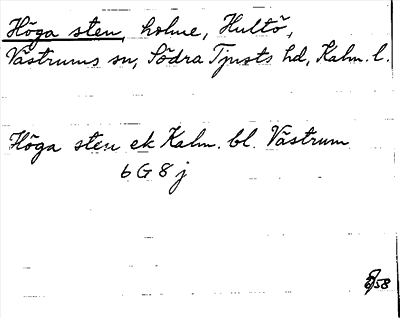 Höga sten, holme, Hultö,
Västrums sn, Södra Tjusts hd, Kalm. l.
Höga sten ek Kalm. bl. Västrum
6 G 8 j